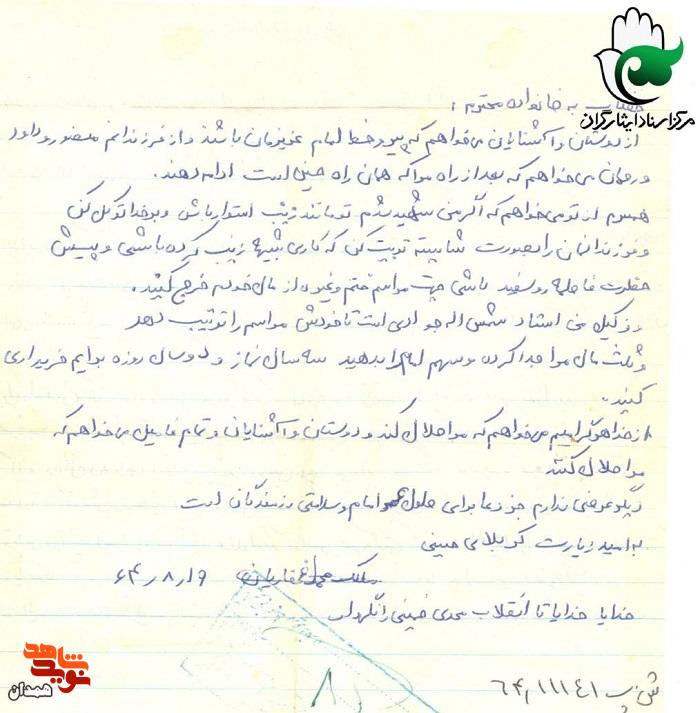 مرکز اسناد ایثارگران
خطاب به خانواده محترم :
از دوستان و آشنایان می خواهم که پیرو خط امام عزیزمان باشند و از فرزندانم منصور و داود
و رحمان می خواهم که بعد از راه مرا که همان راه حسین است ادامه دهند.
همسرم از تو می خواهم که اگر من شهید شدم تو مانند زینب استوار باش و بر خدا توکل کن
و فرزندانمان را بصورت شایسته تربیت کن که کاری شبیه زینب کرده باشی و پیش
حضرت فاطمه رو سفید باشی جهت مراسم ختم و غیره از مال خودم خرج کنید.
وکیل من استاد شمس اله جوادی است تا خودش مراسم را ترتیب دهد
و ثلث مال مرا جدا کرده و سهم امام را بدهید سه سال نماز و دو سال روزه برایم خریداری
کنید.
از خواهر گرامیم می خواهم که مرا حلال کند و دوستان و آشنایان و تمام فامیل می خواهم که
مرا حلال کنند
دیگر عرضی ندارم جز دعا برای طول عمر امام و سلامتی رزمندگان است
به امید زیارت کربلای حسینی
ملک محمد غفاریان ۶۴٫۸٫۱۹
خدایا خدایا تا انقلاب مهدی خمینی را نگهدار
۶۴٫۱۱۱۴۱
نوید شاهد
همدان